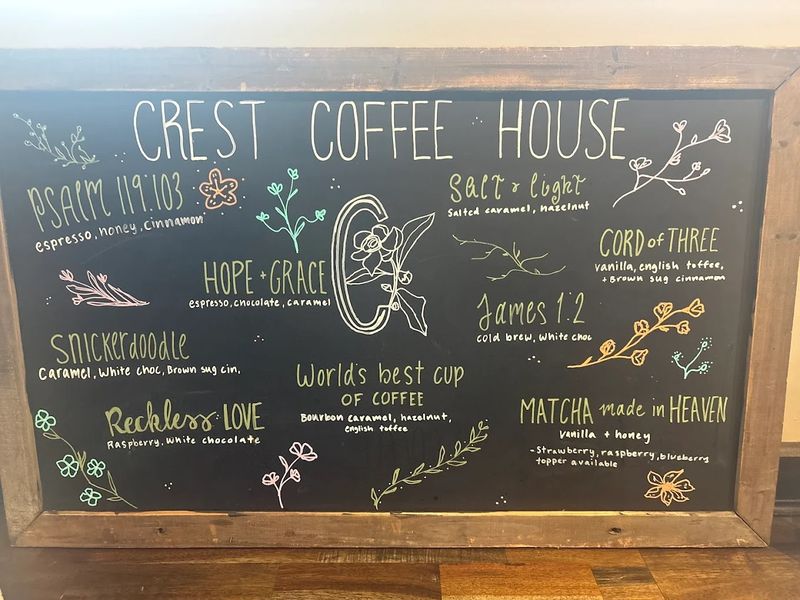 CREST COFFEE HOUSE
PSALM 119:103
espresso, honey, cinnamon
Salt + light
Salted caramel, hazelnut
CORD of THREE
vanilla, english toffee,
+ Brown sug cinnamon
HOPE + GRACE
espresso, chocolate, caramel
C
James 1:2
cold brew, white choc
Snickerdoodle
Caramel, White choc, Brown sug cin.
World's best cup
OF COFFEE
Bourbon caramel, hazelnut,
english toffee
Reckless LOVE
Raspberry, White chocolate
MATCHA made in HEAVEN
vanilla + honey
- Strawberry, raspberry, blueberry
topper available